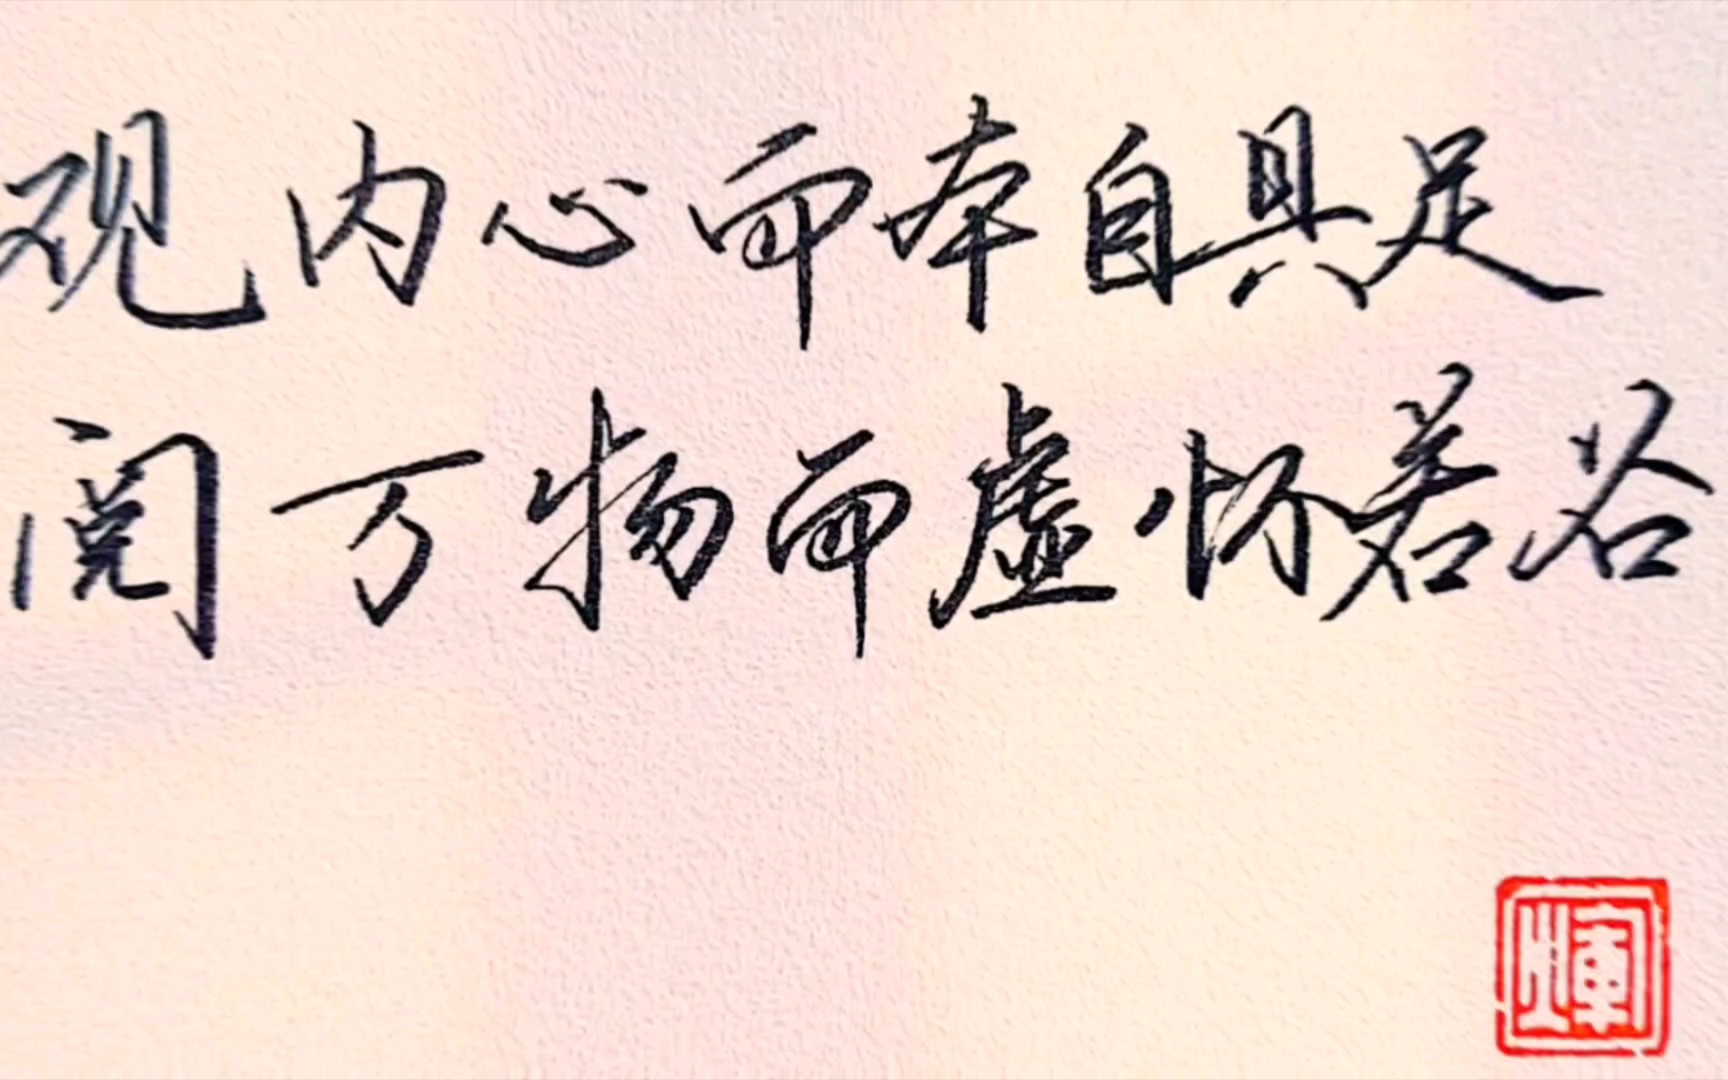 观内心而本自具足
阅万物而虚怀若谷
煇